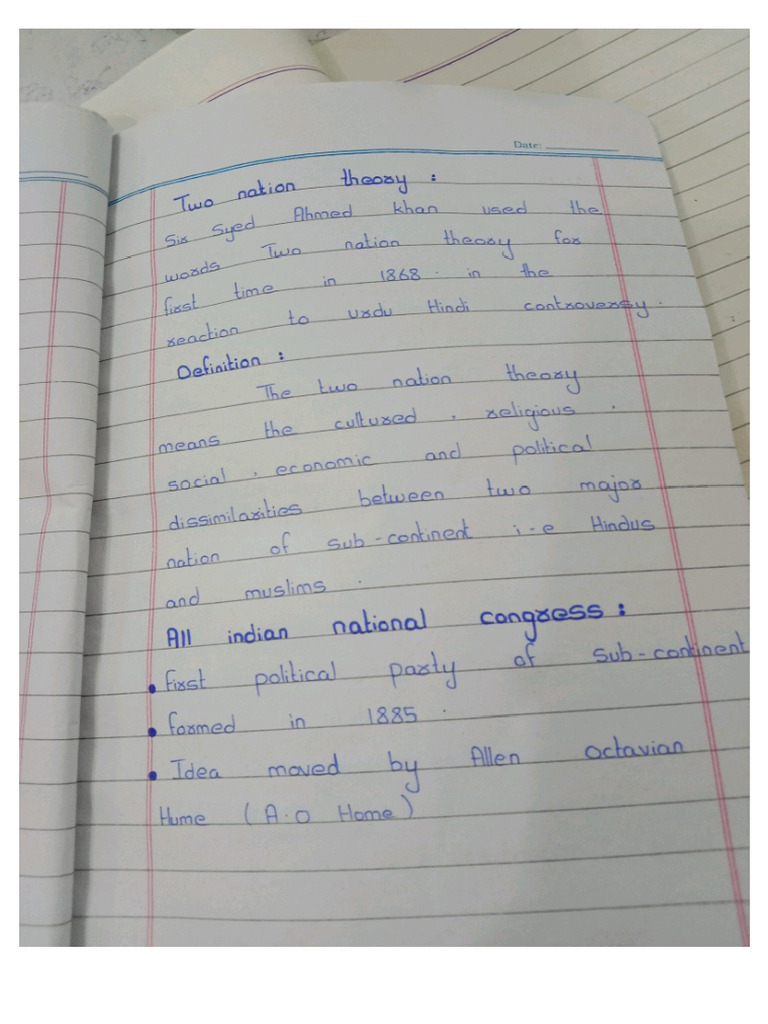 Date:
Two nation theory :
Sir Syed Ahmed khan used the
words Two nation theory for
first time in 1868. in the
reaction to urdu Hindi controversy.
Definition :
The two nation theory
means the cultured , religious .
social , economic and political
dissimilarities between two major
nation of sub-continent i-e Hindus
and muslims .
All indian national congress :
• first political party of sub-continent
• formed in 1885 .
• Idea moved by Allen octavian
Hume ( A.O Home )